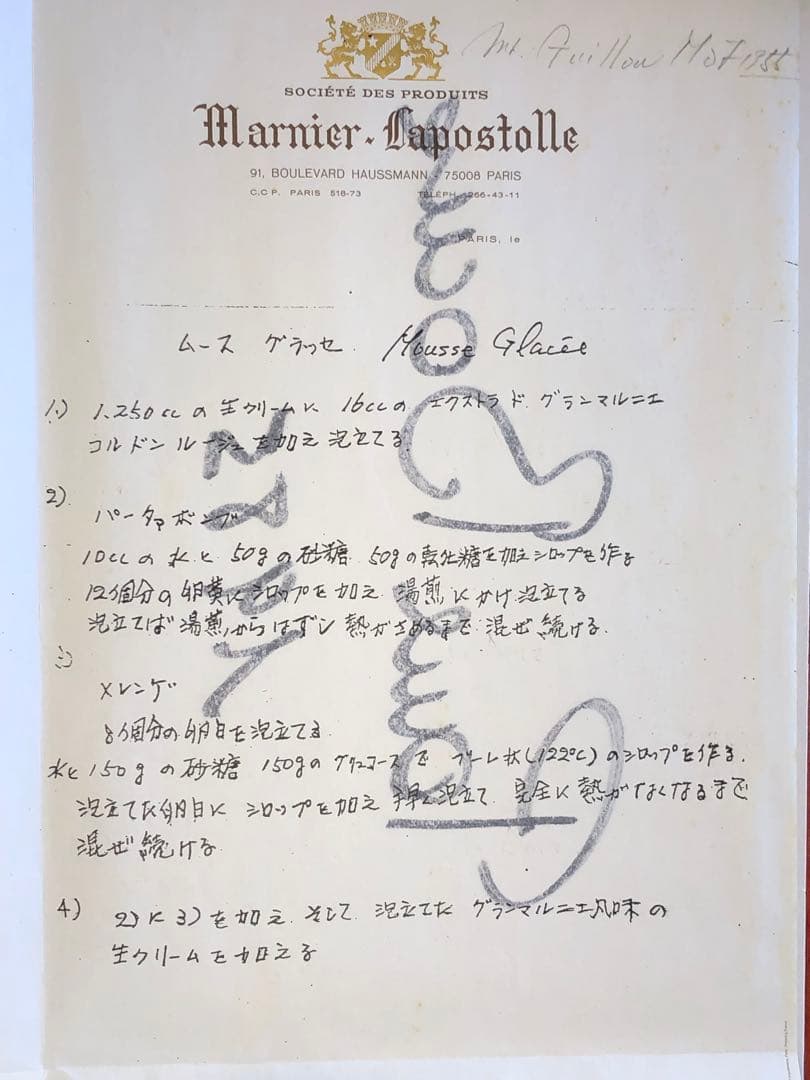 SOCIÉTÉ DES PRODUITS
Marnier-Lapostolle
91, BOULEVARD HAUSSMANN - 75008 PARIS
C.C.P. PARIS 518-73 TÉLÉPH. 266-43-11
PARIS, le
MOF 1955
ムース グラッセ. Mousse Glacée
1.) 1.250ccの生クリームに 16ccの エクストラド.グランマルニエ
コルドン ルージュを加え 泡立てる.
2)
パータァボンブ
10ccの水と 50gの砂糖 50gの転化糖を加えシロップを作る
12個分の卵黄にシロップを加え 湯煎にかけ泡立てる
泡立てば湯煎からはずし 熱がさめるまで 混ぜ続ける.
メレンゲ
8個分の卵白を泡立てる.
水と150gの砂糖 150gのグリュコースで ブーレ状(122℃)のシロップを作る.
泡立てた卵白に シロップを加え 泡立て 完全に熱がなくなるまで
混ぜ続ける
4) 2)に3)を加え.そして 泡立てた グランマルニエ風味の
生クリームを加える